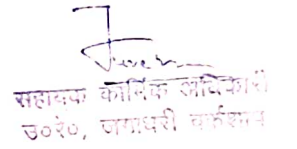 सहायक कार्मिक अधिकारी
उ०रे०, जगाधरी वर्कशाप